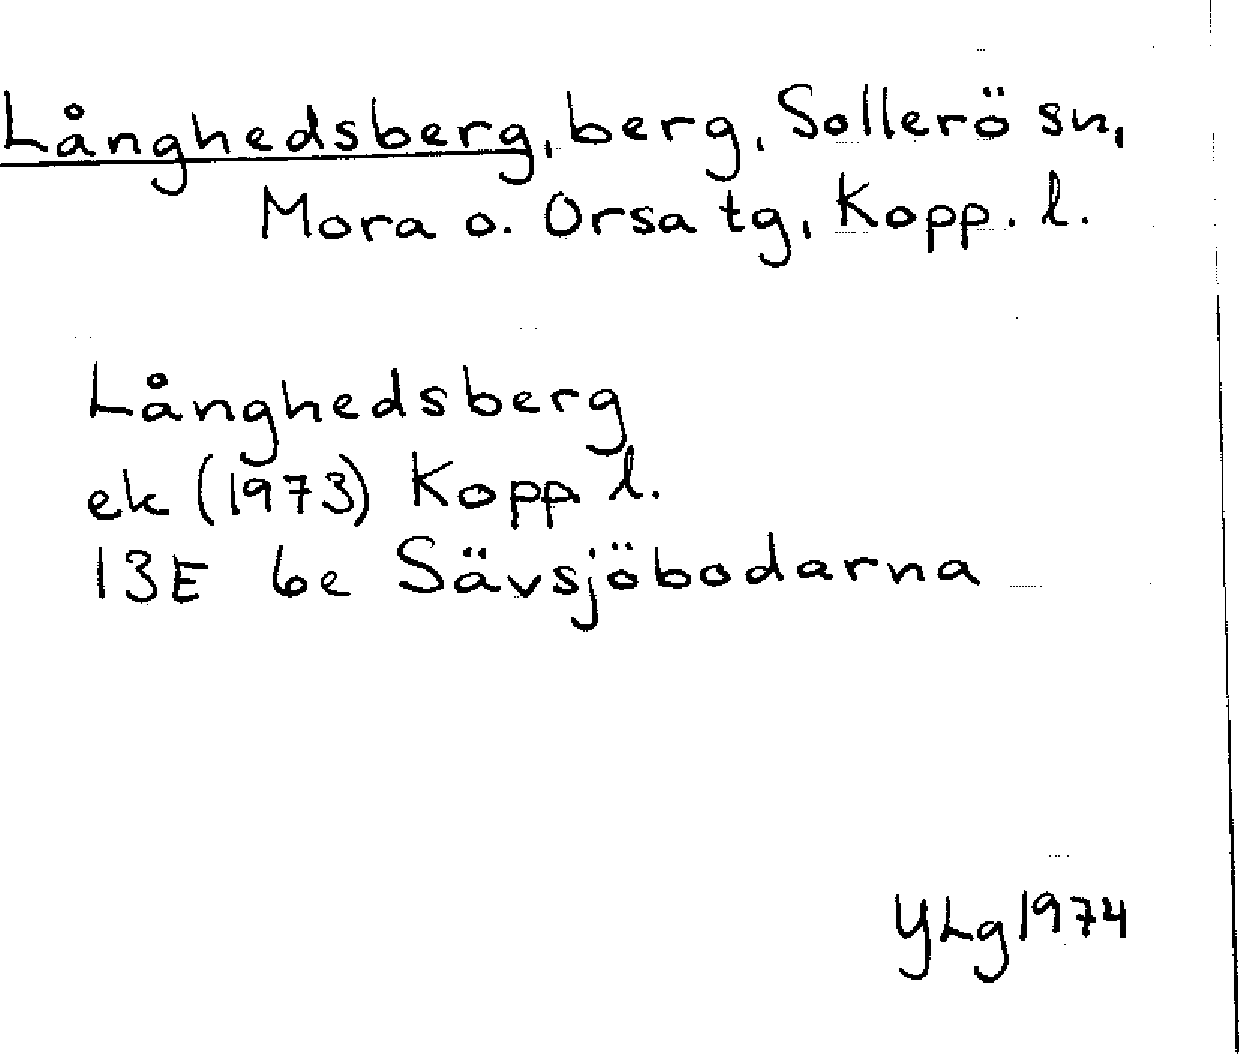 Långhedsberg, berg, Sollerö sn,
Mora o. Orsa tg, Kopp. l.
Långhedsberg
ek (1973) Kopp l.
13E 6e Sävsjöbodarna
YLg 1974